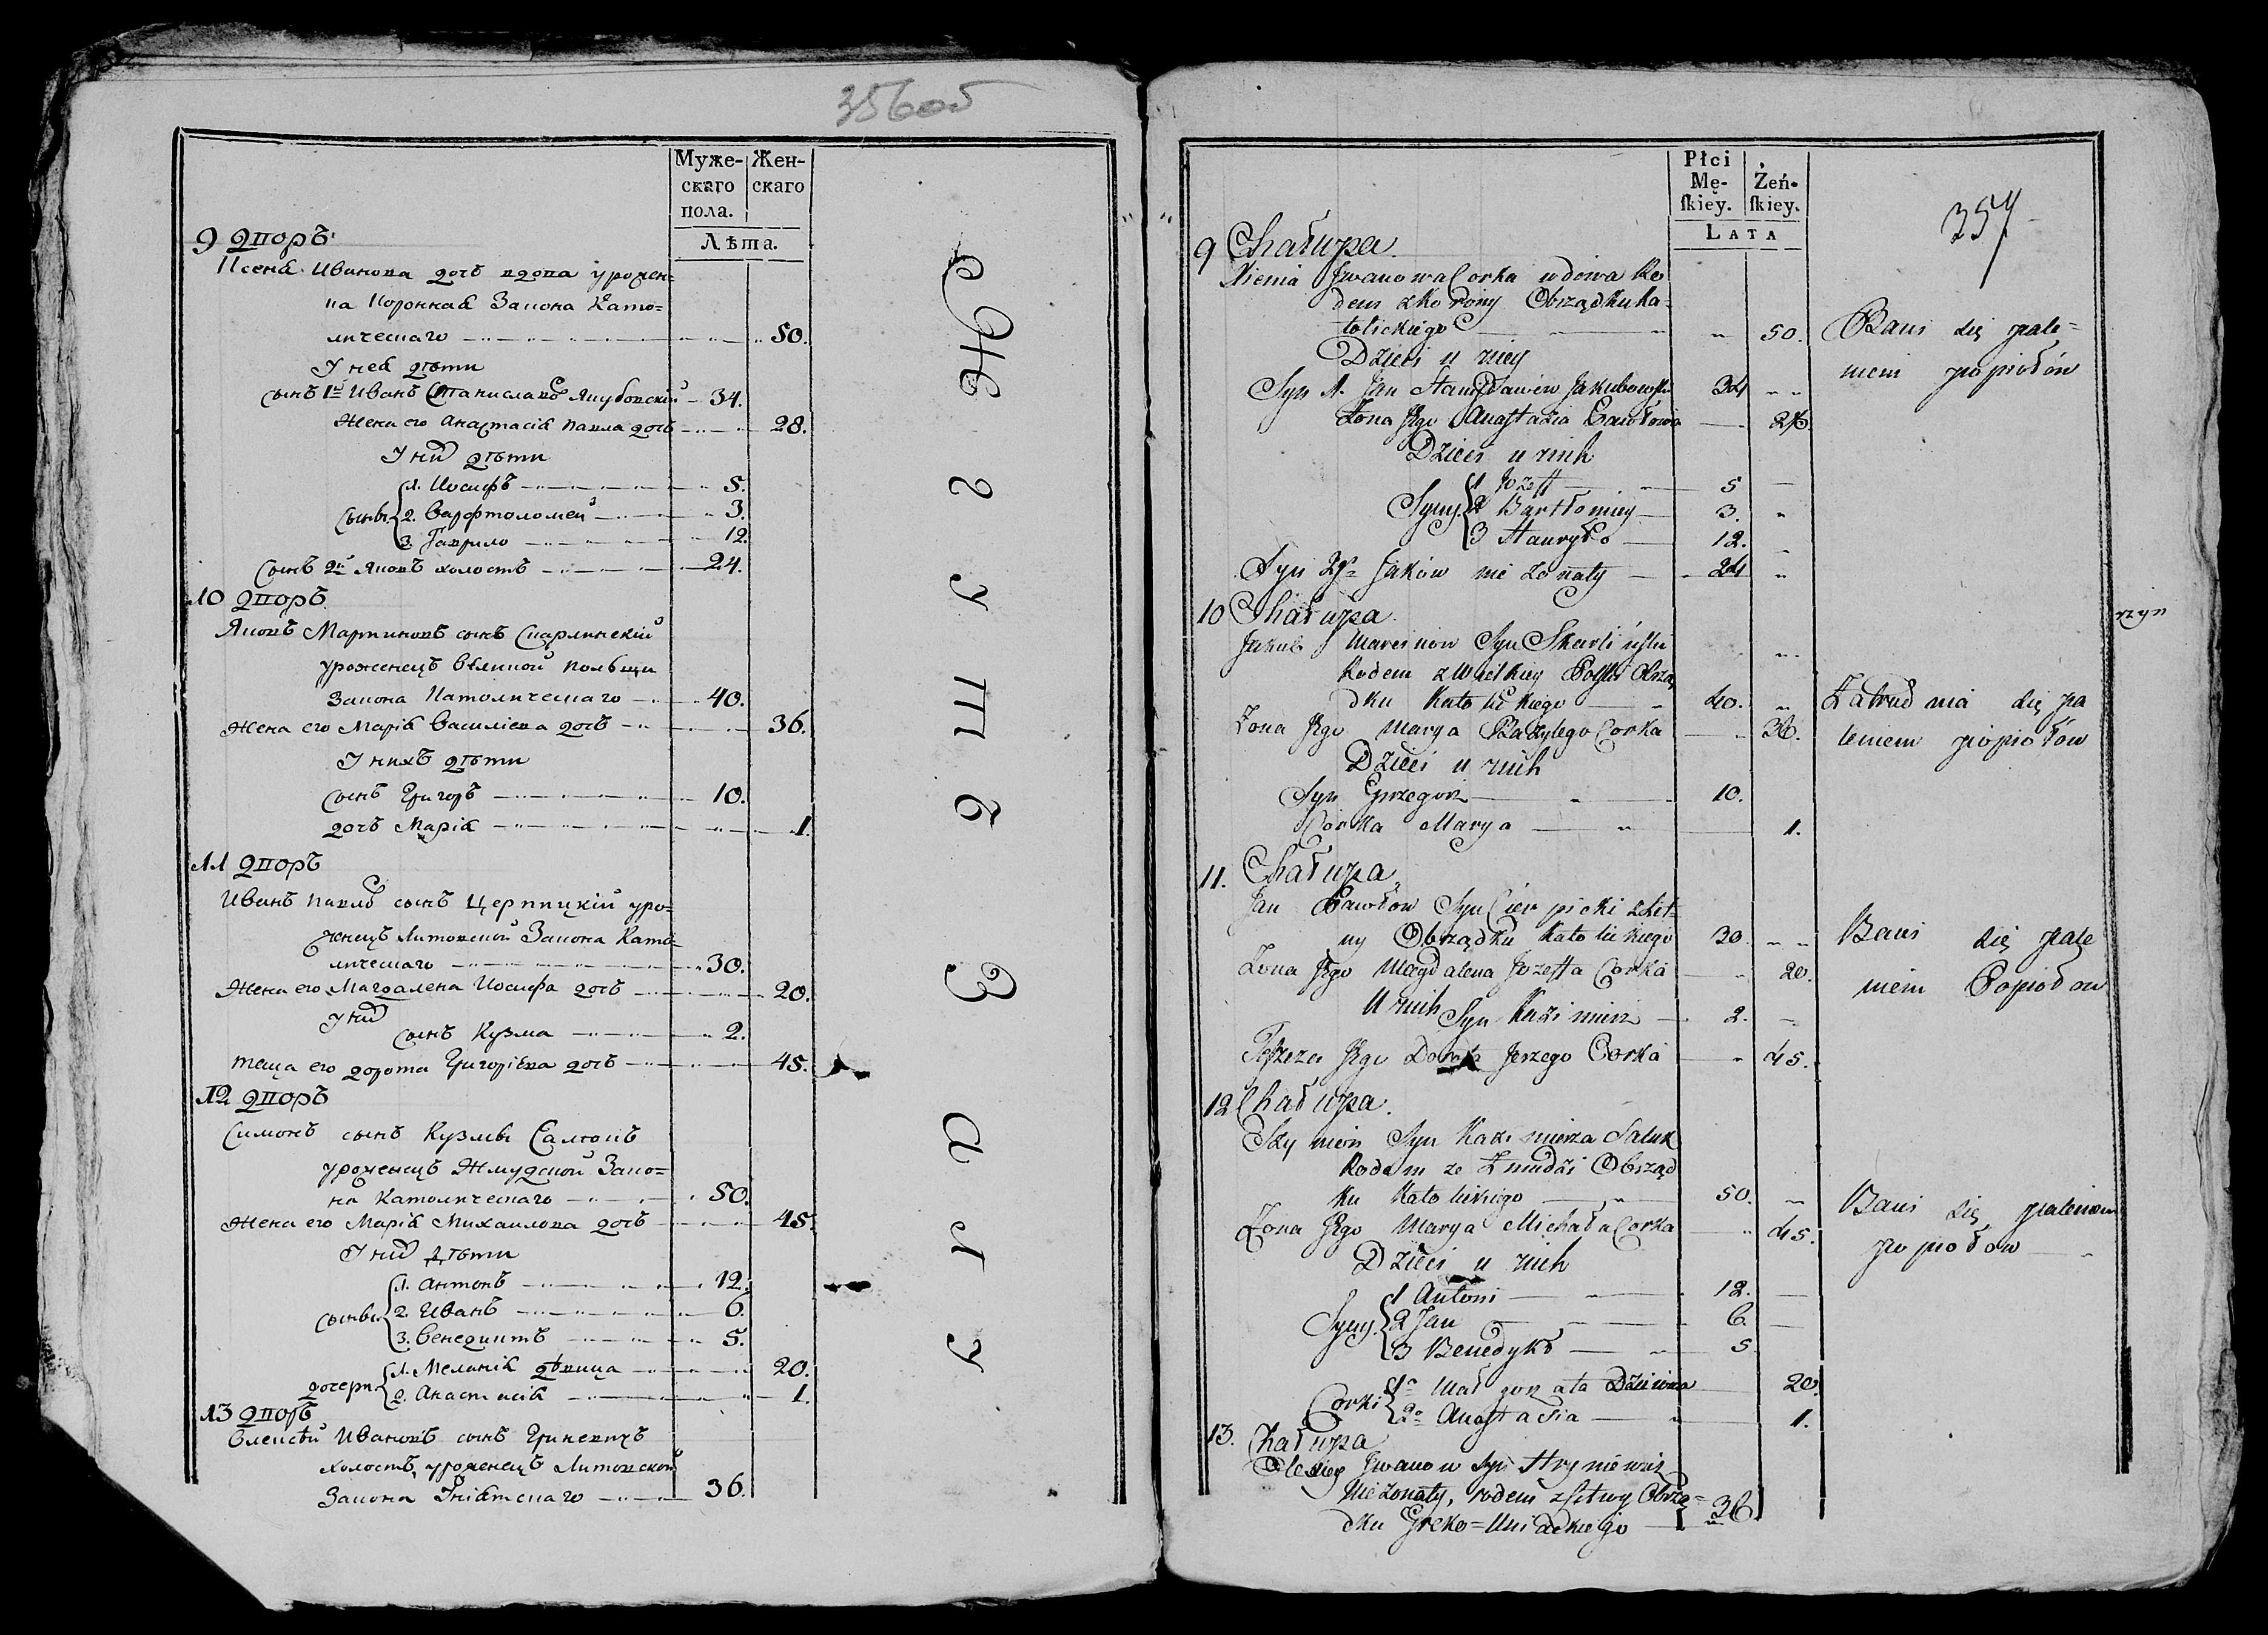 356об
Муже- Жен-
скаго скаго
пола.
Лѣта.
9 Дворъ.
Ксеня Иванова дочь вдова урожен-
на Коронная Закона Като-
лическаго 50.
У нея дѣти
Сынъ 1й Иванъ Станиславов Якубовскій 34.
Жена его Анастасія Павла дочь 28.
У них дѣти
Сыны 1. Иосифъ 5.
2. Варфтоломей 3.
3. Гаврило 12.
Сынъ 2й Яковъ холостъ 24.
10 Дворъ
Яковъ Мартиновъ сынъ Скарлинскій
уроженецъ Великой Польщи
Закона Католическаго 40.
Жена его Марія Василіева дочь 36.
У нихъ дѣти
Сынъ Григоръ 10.
дочь Марія 1.
11 Дворъ
Иванъ Павлов сынъ Церпицкій уро-
женецъ Литовской Закона Като-
лическаго 30.
Жена его Магдалена Иосифа дочь 20.
У них
Сынъ Кузма 2.
теща его дорота Григоріева дочь 45.
12 Дворъ
Симонъ сынъ Кузмы
уроженецъ Жмудской Зако-
на Католическаго 50.
Жена его Марія Михаилова дочь 45.
У них дѣти
Сыны 1. Антонъ 12.
2. Иванъ 6.
3. Бенедиктъ 5.
дочери 1. Меланія дѣвица 20.
2. Анастасія 1.
13 Дворъ
Олексѣй Ивановъ сынъ Гриневичъ
холостъ, уроженецъ Литовской
Закона Уніятскаго 36.
Жгутъ Золу
357
Płci
Mę- Żeń-
ſkiey. ſkiey.
LATA
9 Chałupa.
Xienia Jwanowa Corka wdowa Ro
dem z Korony Obrządku ka-
tolickiego 50. Bawi się pale-
Dzieci u niey niem popiołów
Syn 1. Jan Stanisławiew Jakubowski 34
Żona Jego Anastazia Pawłowa 28.
Dzieci u nich
Syny 1 Jozeff 5
2 Bartłomiey 3.
3 Hawryło 12.
Syn 2gi Jaków nie żonaty 24
10 Chałupa.
Jakub Marcinow Syn Skarliński
Rodem z Wielkiey Polski Obrzą
dku Katolickiego 40. Zatrudnia się pa
Żona Jego Marya Bazylego Corka 36. leniem popiołów
Dzieci u nich
Syn Grzegorz 10.
Corka Marya 1.
11. Chałupa
Jan Pawłow Syn Cierpicki z Lit-
wy Obrządku Katolickiego 30. Bawi się pale
Żona Jego Magdalena Jozeffa Corka 20. niem Popiołow
U nich Syn Kazimierz 2.
Teszcza Jego Dorota Jerzego Corka 45.
12 Chałupa.
Szymon Syn Kazimierza
Rodem ze Żmudzi Obrząd
ku Katolickiego 50. Bawi się paleniem
Żona Jego Marya Michała Corka 45. popiołow
Dzieci u nich
Syny 1 Antoni 12.
2 Jan 6.
3 Benedykt 5
Corki 1a Małgorzata Dziewica 20.
2a Anastasia 1.
13. Chałupa
Olexiey Jwanow Syn Hryniewicz
Nieżonaty, rodem z Litwy Obrzą-
dku Greko-Uniackiego 36.
rzyn